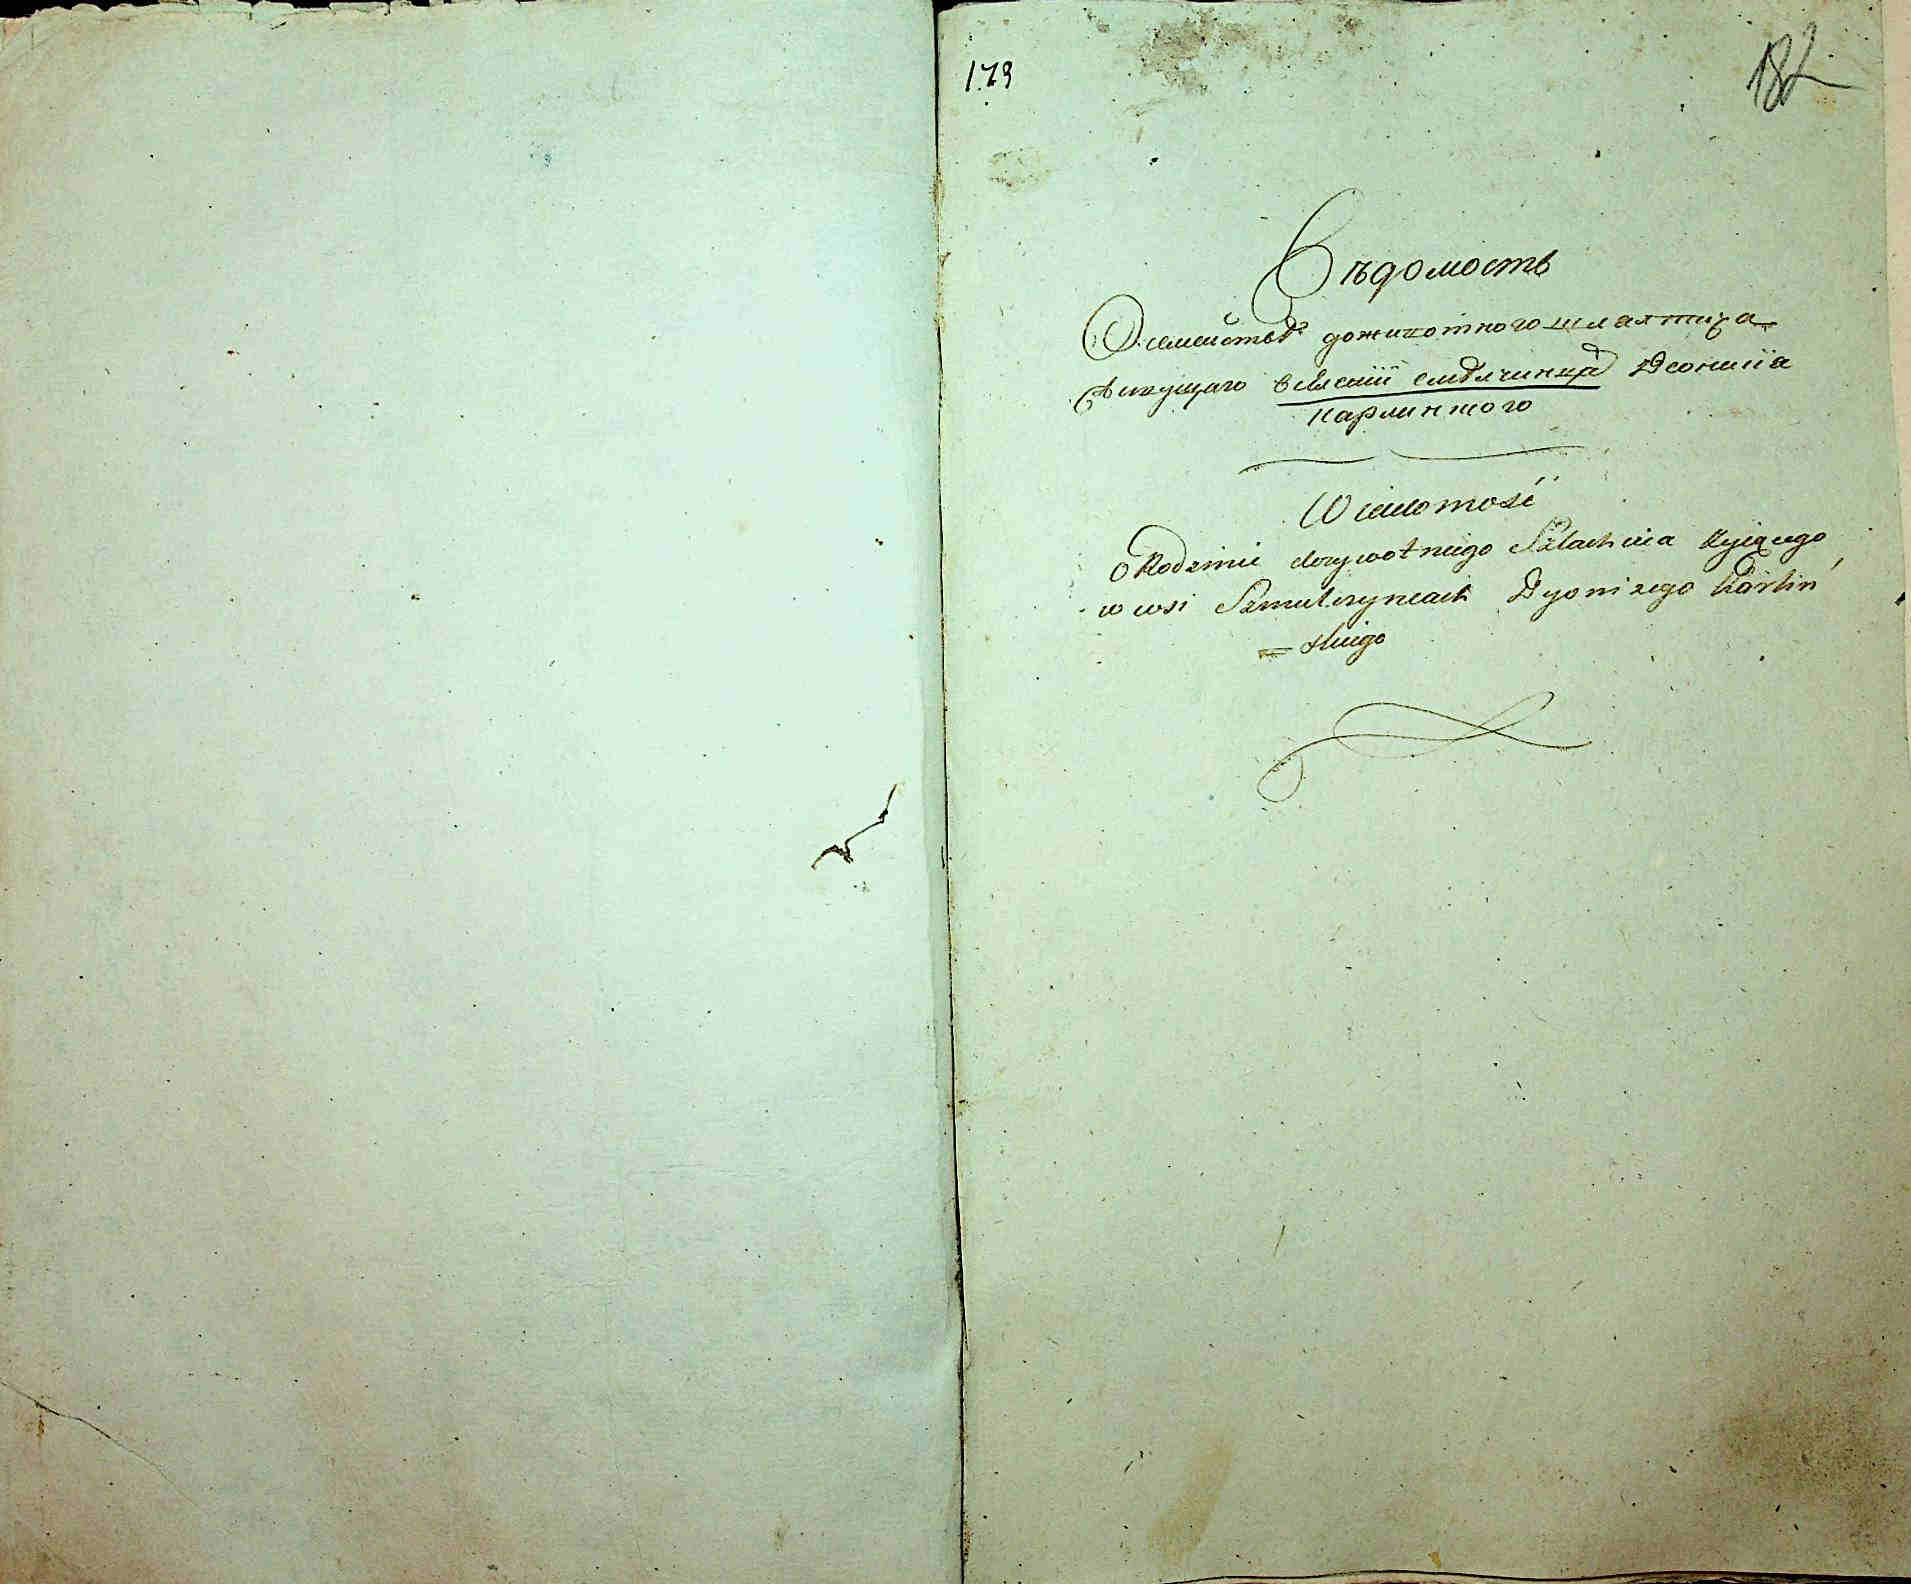 179
182
Вѣдомость
О семействѣ доживотного шляхтича
Живущаго Деонизiя
Карлинского
Wiadomość
O Rodzinie dożywotniego Szlachcica żyiącego
w wsi Szmulczyncach Dyonizego Karliń
= skiego